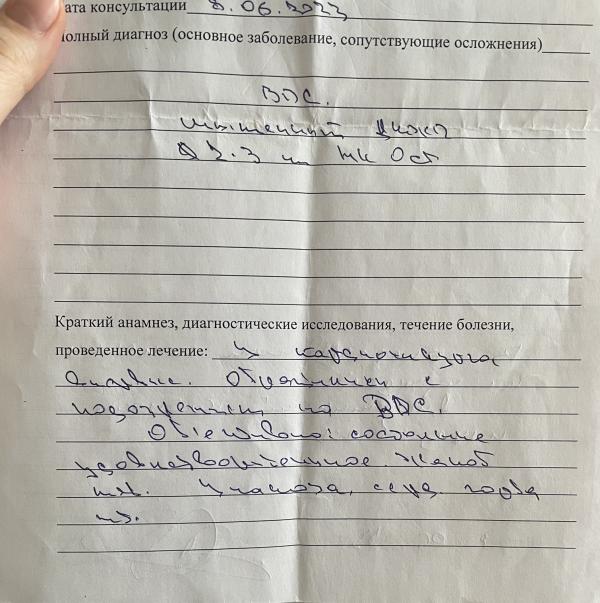 ата консультации 8.06.2023
олный диагноз (основное заболевание, сопутствующие осложнения)
ВПС.
мышечный ДМЖП
2.3 мм НК Ост
Краткий анамнез, диагностические исследования, течение болезни,
проведенное лечение: У кардиолога
впервые. Обратились с
подозрением на ВПС.
Объективно: состояние
удовлетворительное. Жалоб
нет. Цианоза, серд. горба
нет.